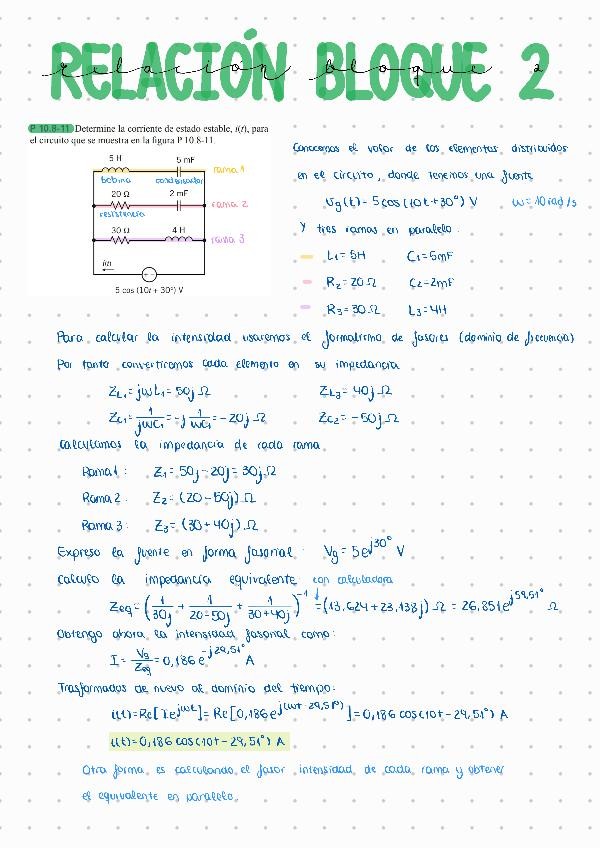 RELACIÓN BLOQUE 2
relación bloque 2
P 10.8-11 Determine la corriente de estado estable, i(t), para
el circuito que se muestra en la figura P 10.8-11.
5 H 5 mF rama 1
bobina condensador
20 Ω 2 mF rama 2
resistencia
30 Ω 4 H rama 3
i(t)
+ −
5 cos (10t + 30°) V
Conocemos el valor de los elementos distribuidos
en el circuito, donde tenemos una fuente
Vg(t) = 5cos(10t+30°) V ω=10rad/s
Y tres ramas en paralelo:
L₁= 5H C₁=5mF
R₂= 20Ω C₂=2mF
R₃= 30Ω L₃=4H
Para calcular la intensidad usaremos el formalismo de fasores (dominio de frecuencia)
Por tanto convertiremos cada elemento en su impedancia
Z_L₁=jωL₁=50j Ω Z_L₃= 40j Ω
Z_C₁= 1/jωC₁ = -j 1/ωC₁ = -20j Ω Z_C₂= -50j Ω
Calculamos la impedancia de cada rama
Rama 1: Z₁= 50j-20j= 30j Ω
Rama 2: Z₂= (20-50j) Ω
Rama 3: Z₃= (30+40j) Ω
Expreso la fuente en forma fasorial: Vg= 5e^j30° V
calculo la impedancia equivalente con calculadora
Zeq= (1/30j + 1/20-50j + 1/30+40j)^-1 =(13,624+23,138j) Ω = 26,851e^j59,51° Ω
Obtengo ahora la intensidad fasorial como:
I= Vg/Zeq = 0,186 e^-j29,51° A
Trasformados de nuevo al dominio del tiempo:
i(t)=Re[I·e^jωt]= Re[0,186e^j(ωt-29,51°)]=0,186 cos(10t-29,51°) A
i(t)=0,186 cos(10t-29,51°) A
Otra forma es calculando el fasor intensidad de cada rama y obtener
el equivalente en paralelo.